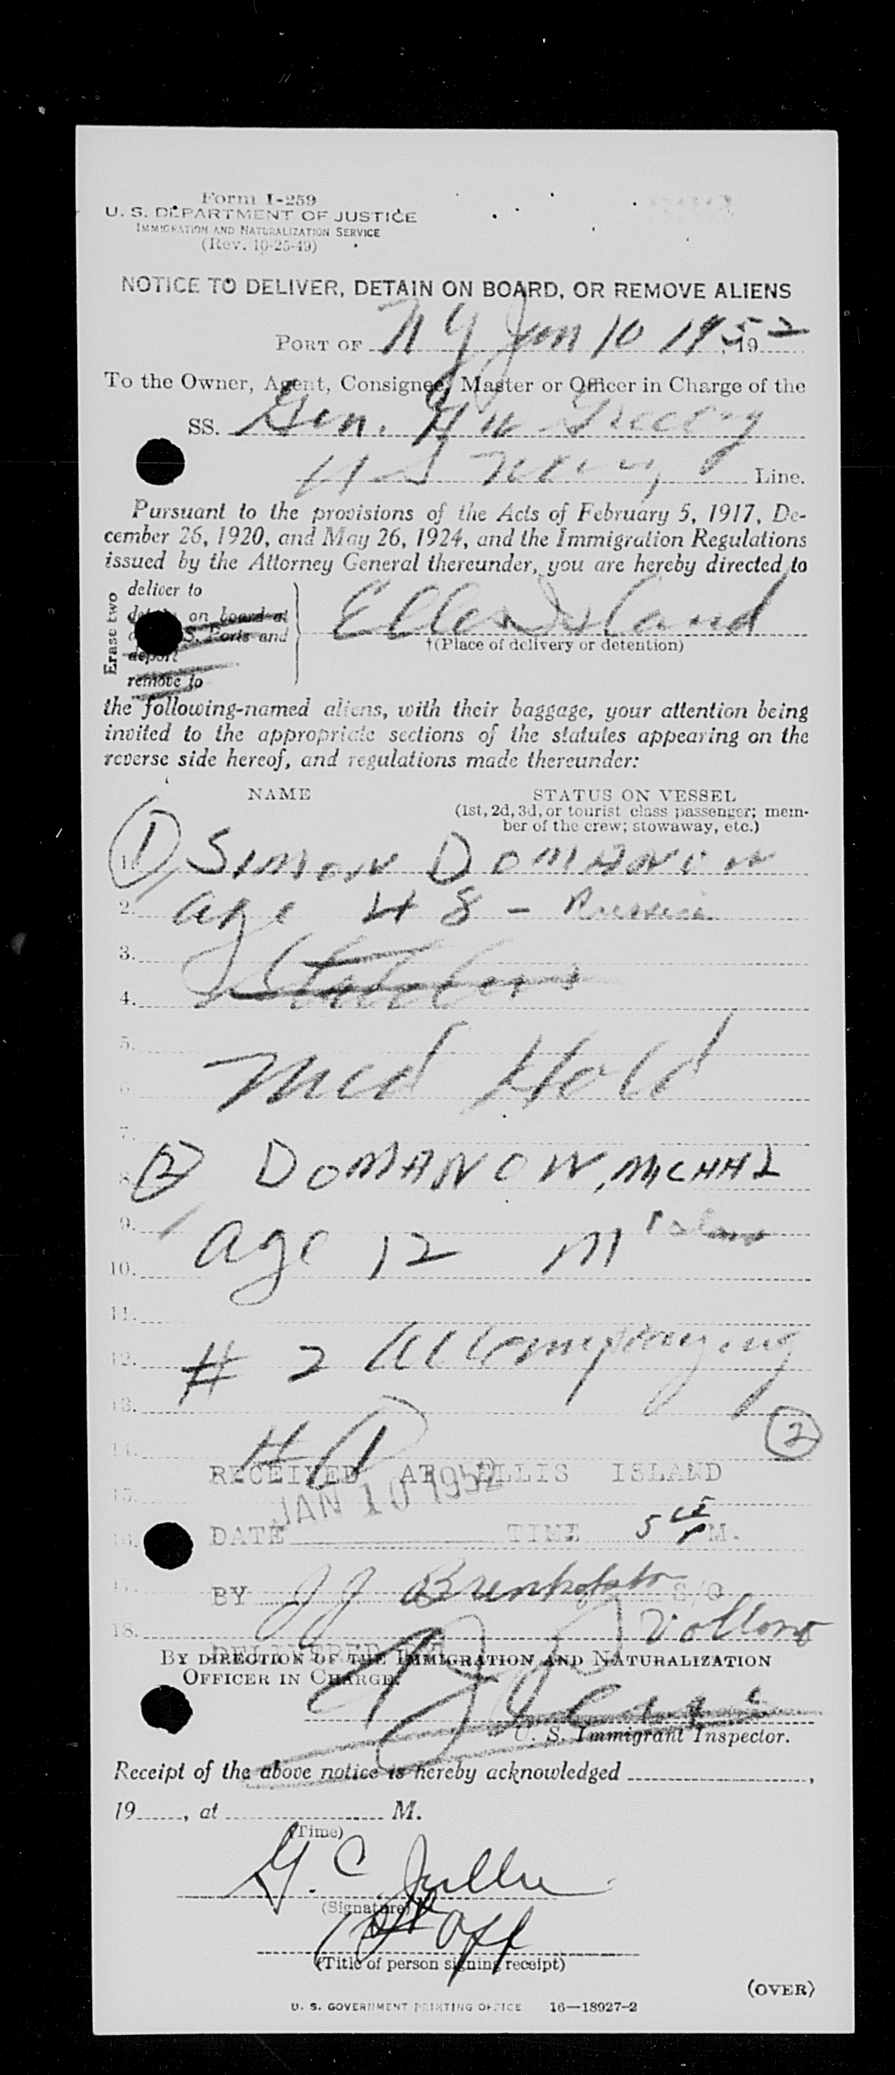 Form I-259
U. S. DEPARTMENT OF JUSTICE
IMMIGRATION AND NATURALIZATION SERVICE
(Rev. 10-25-49)
NOTICE TO DELIVER, DETAIN ON BOARD, OR REMOVE ALIENS
PORT OF N Y Jan 10 1952, 19
To the Owner, Agent, Consignee, Master or Officer in Charge of the
SS. Gen.
U S Navy Line.
Pursuant to the provisions of the Acts of February 5, 1917, De-
cember 26, 1920, and May 26, 1924, and the Immigration Regulations
issued by the Attorney General thereunder, you are hereby directed to
Erase two
deliver to
on board at
U.S. Ports and
deport
remove to
Ellis Island
†(Place of delivery or detention)
the following-named aliens, with their baggage, your attention being
invited to the appropriate sections of the statutes appearing on the
reverse side hereof, and regulations made thereunder:
NAME STATUS ON VESSEL
(1st, 2d, 3d, or tourist class passenger; mem-
ber of the crew; stowaway, etc.)
1. (1) SIMON DOMANOW
2. age 48 - Russia
3.
4.
5.
6. Med Hold
7.
8. (2) DOMANOW, MICHAL
9.
10. age 12 M
11.
12. # 2 accompanying
13.
14. # (1) (2)
RECEIVED AT ELLIS ISLAND
15. JAN 10 1952
16. DATE TIME 5 P M.
17. BY J J S/O
18.
DELIVERED
BY DIRECTION OF THE IMMIGRATION AND NATURALIZATION
OFFICER IN CHARGE.
U. S. Immigrant Inspector.
Receipt of the above notice is hereby acknowledged ,
19 , at M.
(Time)
G. C.
(Signature)
(Title of person signing receipt)
(OVER)
U. S. GOVERNMENT PRINTING OFFICE 16—18927-2